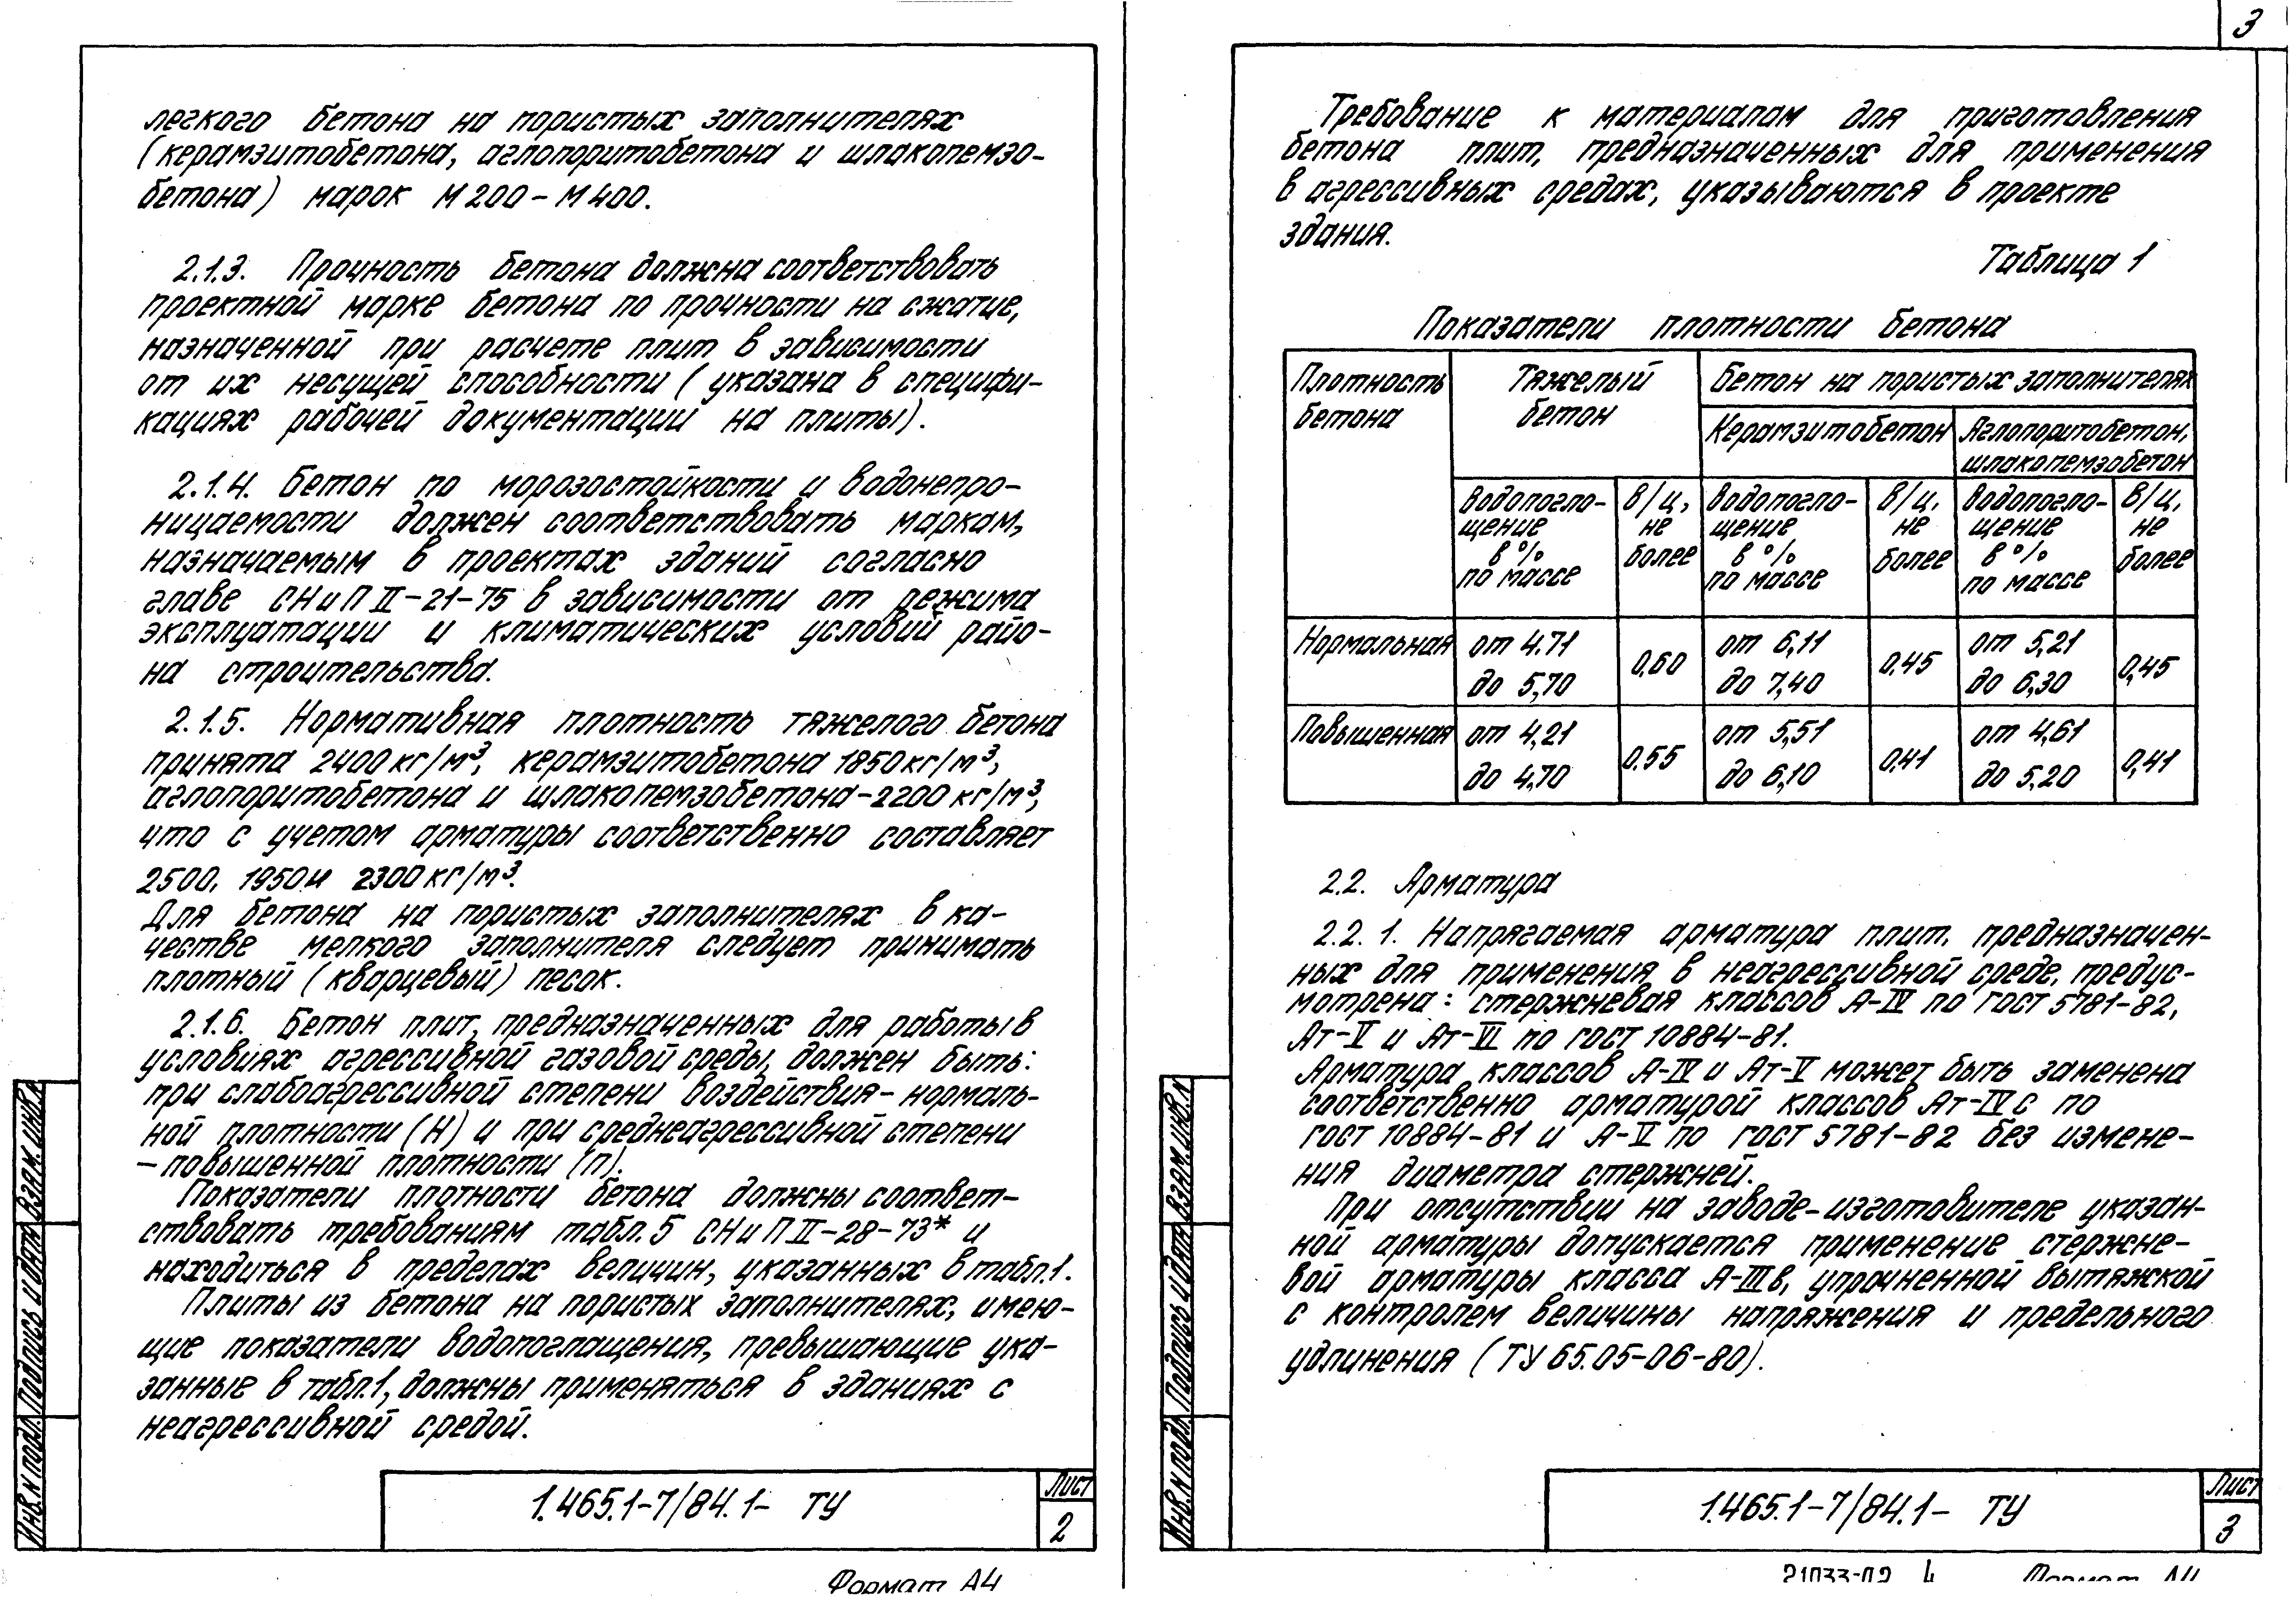 легкого бетона на пористых заполнителях
(керамзитобетона, аглопоритобетона и шлакопемзо-
бетона) марок М200-М400.
2.1.3. Прочность бетона должна соответствовать
проектной марке бетона по прочности на сжатие,
назначенной при расчете плит в зависимости
от их несущей способности (указана в специфи-
кациях рабочей документации на плиты).
2.1.4. Бетон по морозостойкости и водонепро-
ницаемости должен соответствовать маркам,
назначаемым в проектах зданий согласно
главе СНиП II-21-75 в зависимости от режима
эксплуатации и климатических условий райо-
на строительства.
2.1.5. Нормативная плотность тяжелого бетона
принята 2400 кг/м³, керамзитобетона 1850 кг/м³,
аглопоритобетона и шлакопемзобетона-2200 кг/м³,
что с учетом арматуры соответственно составляет
2500, 1950 и 2300 кг/м³.
Для бетона на пористых заполнителях в ка-
честве мелкого заполнителя следует принимать
плотный (кварцевый) песок.
2.1.6. Бетон плит, предназначенных для работы в
условиях агрессивной газовой среды, должен быть:
при слабоагрессивной степени воздействия-нормаль-
ной плотности (Н) и при среднеагрессивной степени
-повышенной плотности (П).
Показатели плотности бетона должны соответ-
ствовать требованиям табл.5 СНиП II-28-73* и
находиться в пределах величин, указанных в табл.1.
Плиты из бетона на пористых заполнителях, имею-
щие показатели водопоглащения, превышающие ука-
занные в табл.1, должны применяться в зданиях с
неагрессивной средой.
Инв.N подл. Подпись и дата Взам.инв.N
1.465.1-7/84.1- ТУ
Лист
2
Формат А4
3
Требование к материалам для приготовления
бетона плит, предназначенных для применения
в агрессивных средах, указываются в проекте
здания.
Таблица 1
Показатели плотности бетона
Плотность бетона
Тяжелый бетон
Бетон на пористых заполнителях
Керамзитобетон
Аглопоритобетон,
шлакопемзобетон
Водопогло-
щение
в %
по массе
В/Ц,
не
более
Водопогло-
щение
в %
по массе
В/Ц,
не
более
Водопогло-
щение
в %
по массе
В/Ц,
не
более
Нормальная от 4.71 до 5,70 0,60 от 6,11 до 7,40 0,45 от 5,21 до 6,30 0,45
Повышенная от 4,21 до 4,70 0.55 от 5,51 до 6,10 0,41 от 4,61 до 5,20 0,41
2.2. Арматура
2.2.1. Напрягаемая арматура плит, предназначен-
ных для применения в неагрессивной среде, предус-
мотрена: стержневая классов А-IV по ГОСТ 5781-82,
Ат-V и Ат-VI по ГОСТ 10884-81.
Арматура классов А-IV и Ат-V может быть заменена
соответственно арматурой классов Ат-IVС по
ГОСТ 10884-81 и А-V по ГОСТ 5781-82 без измене-
ния диаметра стержней.
При отсутствии на заводе-изготовителе указан-
ной арматуры допускается применение стержне-
вой арматуры класса А-IIIв, упрочненной вытяжкой
с контролем величины напряжения и предельного
удлинения (ТУ 65.05-06-80).
Инв.N подл. Подпись и дата Взам.инв.N
1.465.1-7/84.1- ТУ
Лист
3
21033-02 4 Формат А4